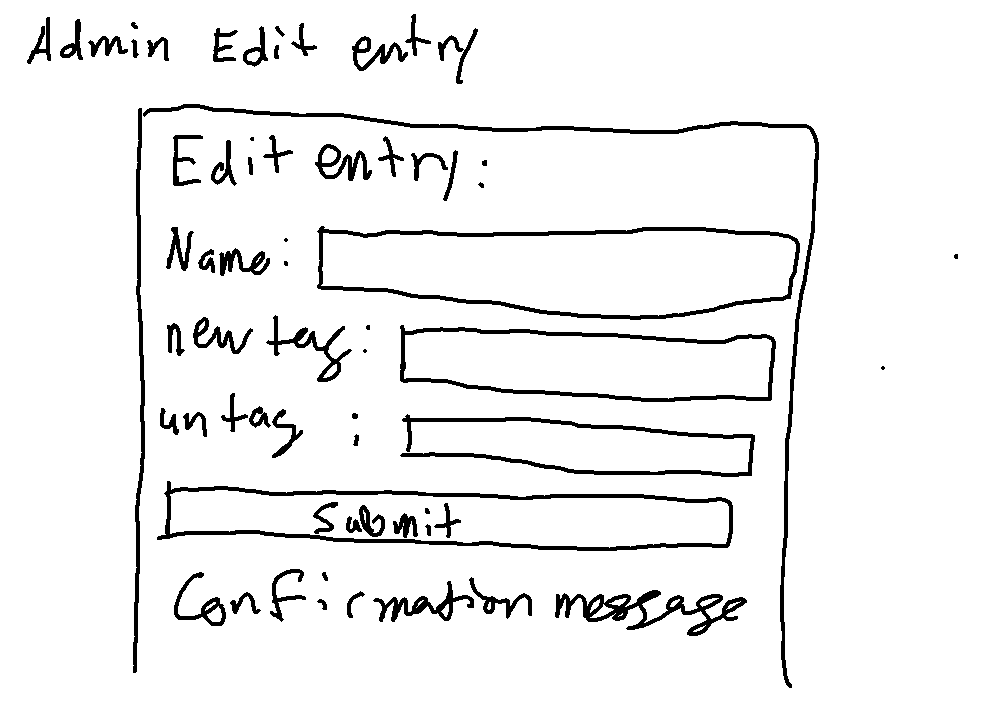 Admin Edit entry
Edit entry:
Name:
new tag:
untag :
Submit
Confirmation message